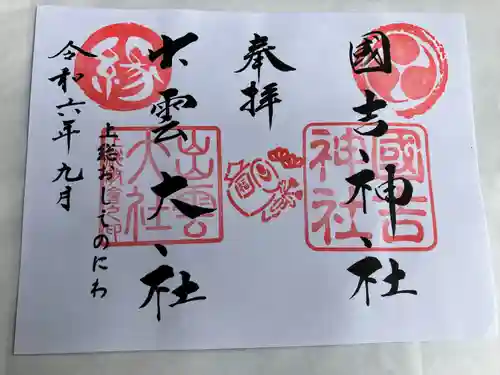 國吉神社
奉拝
出雲大社
上総おしてのにわ
令和六年九月
國吉
神社
出雲
大社
縁